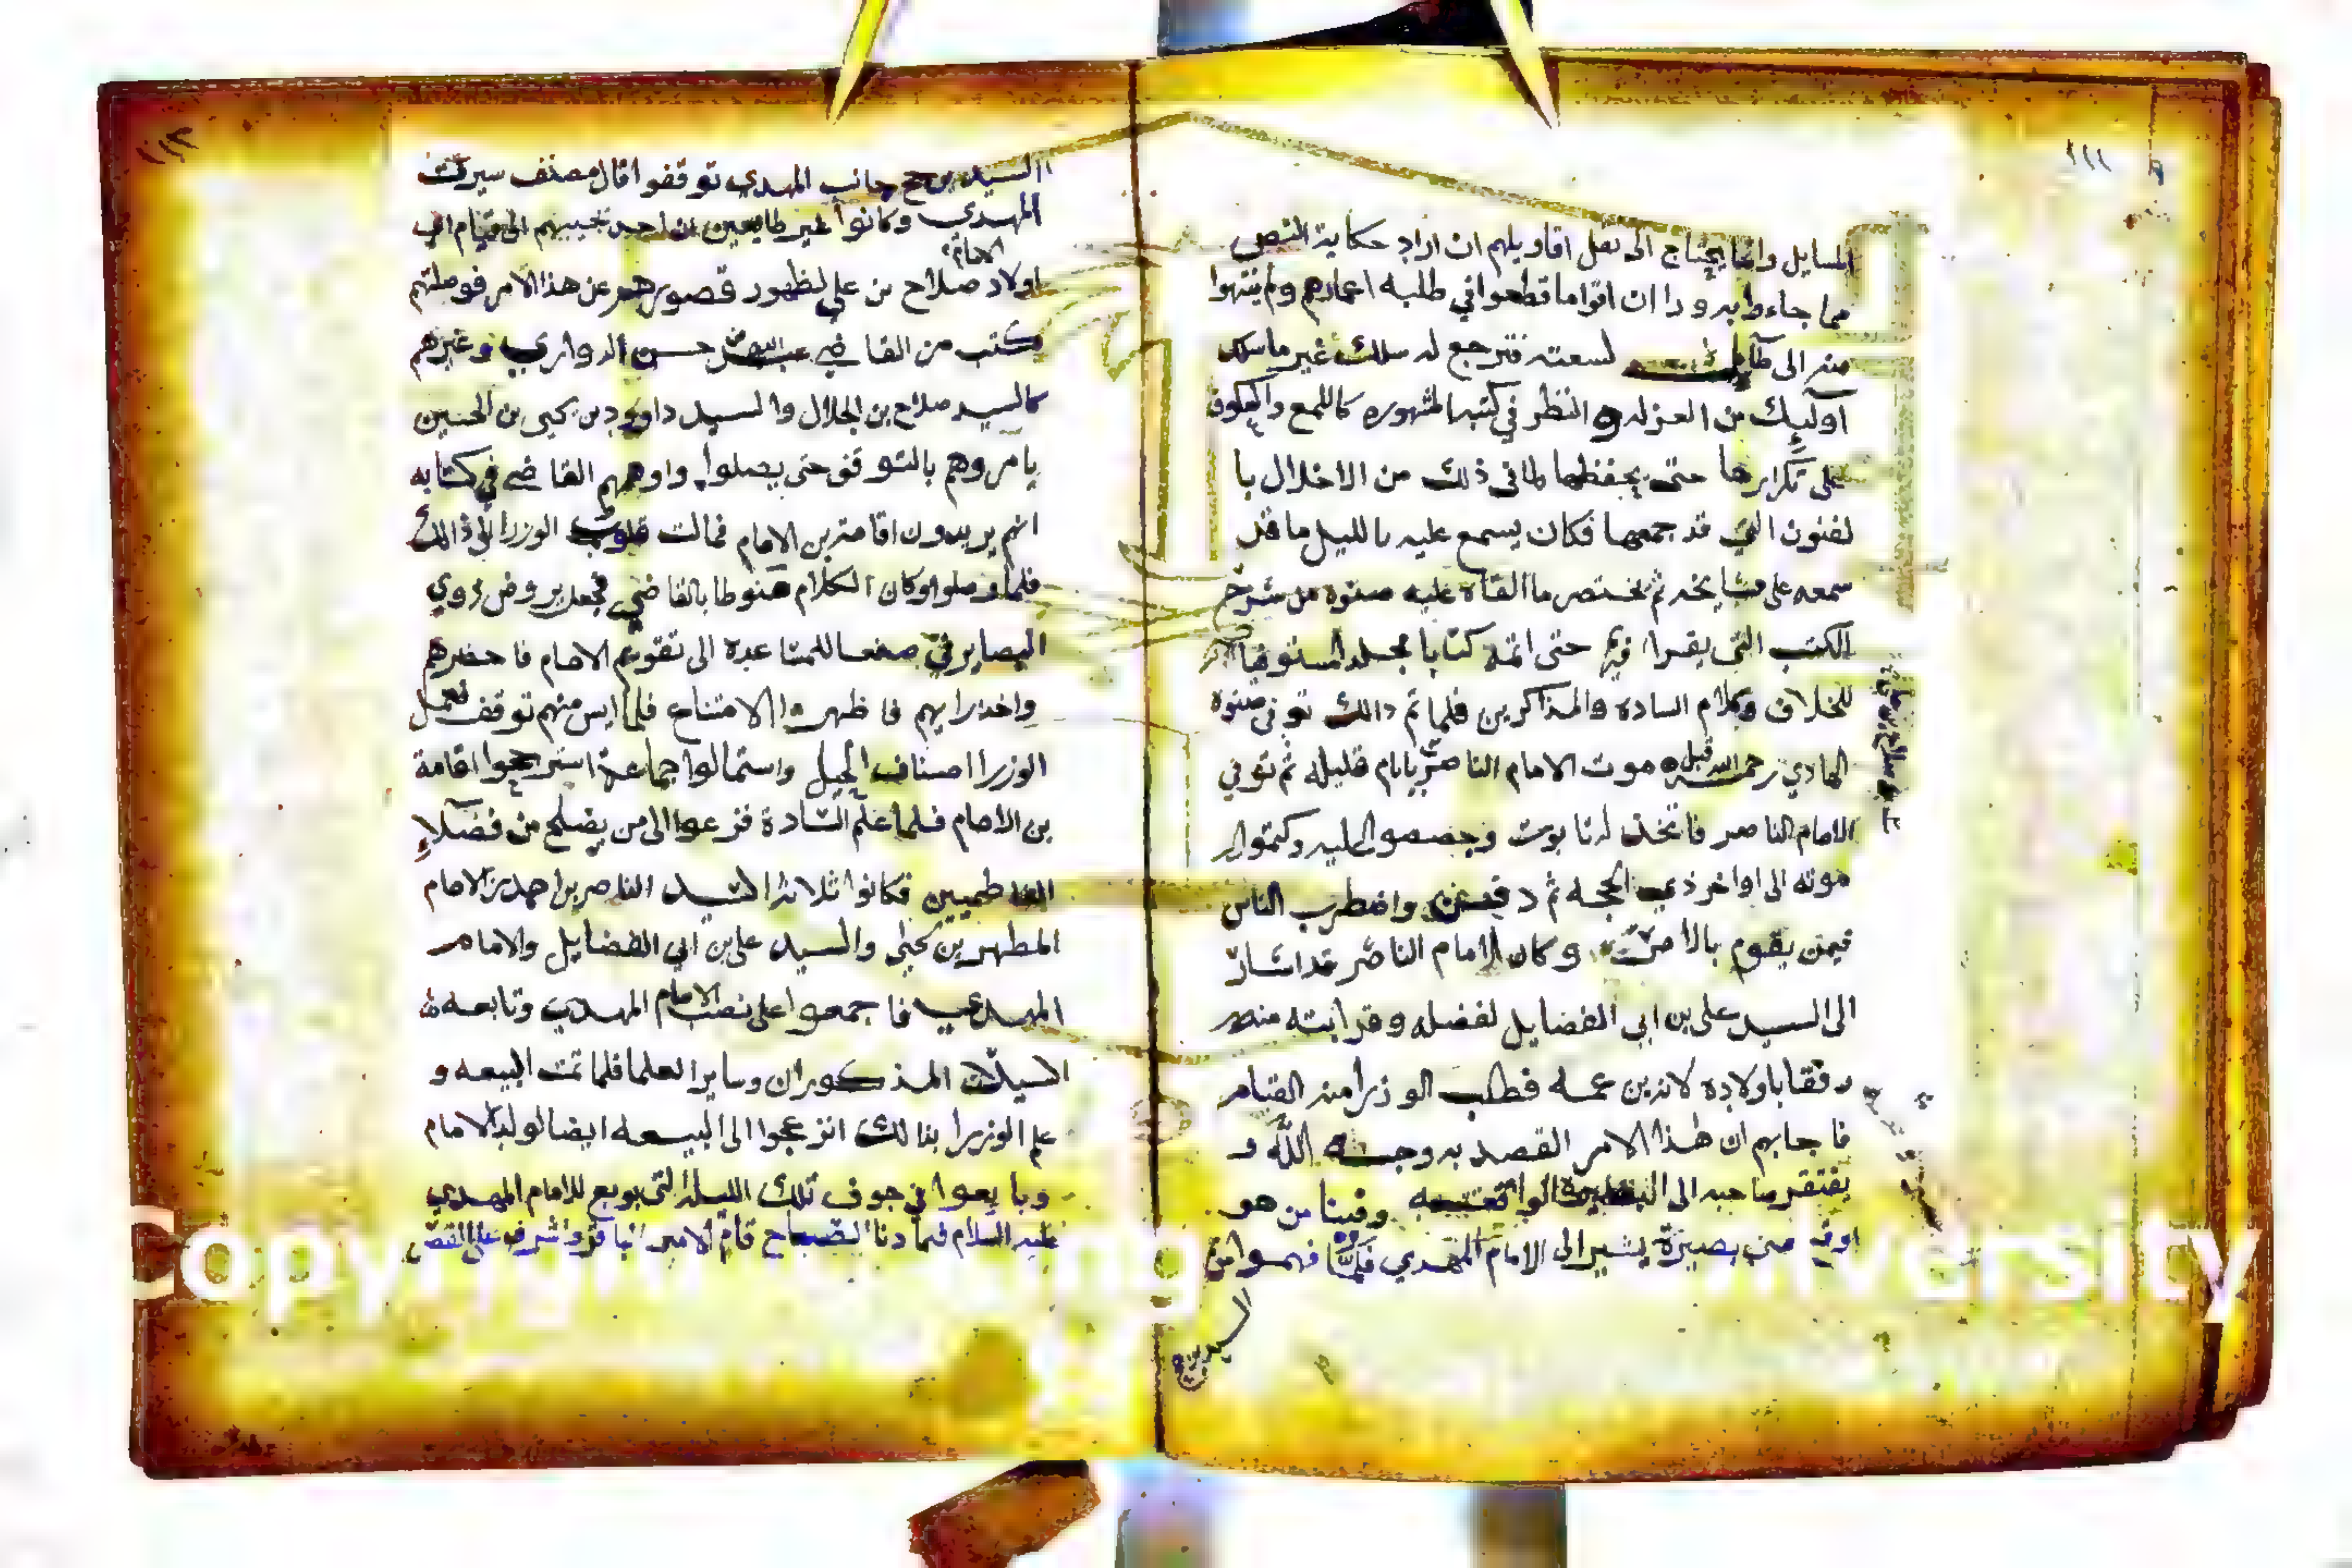 ١١١
المسايل وانما يحتاج الى نقل اقاويلهم ان اراد حكاية النص
مما جاءوا به ورا ان اقواما قطعوا في طلبه اعمارهم ولم ينتهوا
منه الى طآيل لسعته فترجع له سلك غير ما سلك
اوليك من العزله و النظر في كتبه المشهوره كاللمع
على تكرارها حتى يحفظها لما في ذلك من الاخلال با
لفنون التي قد جمعها فكان يسمع عليه بالليل ما قد
سمعه على مشايخه ثم يختصر ما القاه عليه صنوه من شرح
الكتب التي يقرا فيها حتى اتمه كتابا مجلدا مستوفيا
للخلاف وكلام الساده والمذاكرين فلما تم ذالك توفي صنوه
الهادي رحمه الله قبل موت الامام الناصر بايام قليله ثم توفي
الامام الناصر فاتخذ له تابوت وجصصوا عليه وكتموا
موته الى اواخر ذي الحجه ثم واضطرب الناس
فيمن يقوم بالامر وكان الامام الناصر قد اشار
الى السيد علي بن ابي الفضايل لفضله وقرابته منه
و فقا باولاده لانه بن عمه فطلب الوزرا منه القيام
فاجابهم ان هذا الامر القصد به وجه الله و
يفتقر صاحبه الى البصيره قالوا وفينا من هو
اوفى مني بصيرة يشير الى الامام المهدي فلما فهموا من
السيد
١١٢
السيد جانب المهدي توقفوا قال مصنف سيرة
المهدي وكانوا غير طامعين ان احد يجيبهم الى قيام اي
الامام
اولاد صلاح بن علي لظهور قصورهم عن هذا الامر فوصلتهم
كتب من القاضي عبدالله بن حسن الدواري وغيرهم
كالسيد صلاح بن الجلال والسيد داوود بن يحيى بن الحسين
يامروهم بالتوقف حتى يصلوا واوهمهم القاضي في كتابه
انهم يريدون اقامة بن الامام فمالت قلوب الوزرا الى ذالك
فلما وصلوا وكان الكلام منوطا بالقاضي فجعل يروض ذوي
البصاير في صنعا للمساعدة الى تقويم الامام فاحضرهم
واخذ رايهم فاظهروا الامتناع فلما ايس منهم توقف فعمل
الوزرا اصناف الحيل واستمالوا جماعة استرجحوا اقامة
بن الامام فلما علم السادة فزعوا الى من يصلح من فضلاء
الفاطميين فكانوا ثلاثة السيد الناصر بن احمد بن الامام
المطهر بن يحيى والسيد علي بن ابي الفضايل والامام
المهدي فاجمعوا على نصب الامام المهدي وتابعه
السيدان المذكوران وساير العلما فلما تمت البيعه و
علم الوزرا بذالك انزعجوا الى البيعه ايضا لولد الامام
وبايعوا في جوف تلك الليله التي بويع للامام المهدي
عليه السلام فلما دنا الصباح قام الامير واشرف على القصر